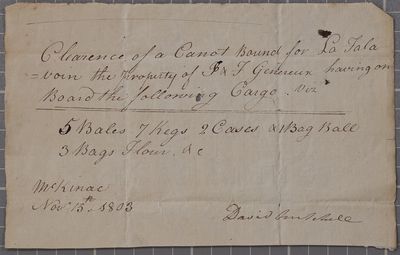 Clearence of a Canot Bound for La Tala
=voin the Property of J & J Genereux having on
Board the following Cargo. Viz
5 Bales 7 Kegs 2 Cases & 1 Bag Ball
3 Bags Flour. &c
McKinac
Novr 15th 1803
David Mitchell